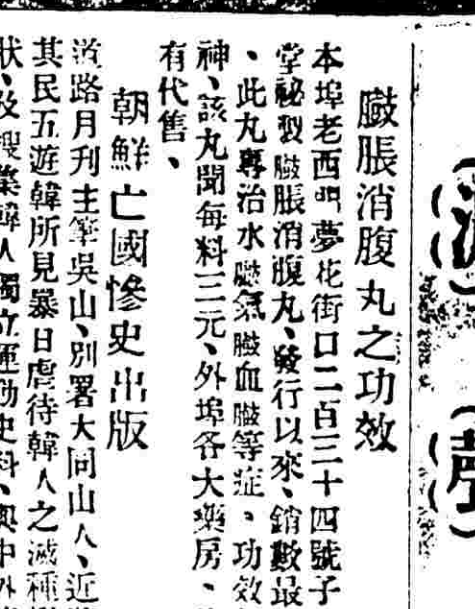 臌脹消腹丸之功效
本埠老西門夢花街口二百三十四號子
堂祕製臌脹消腹丸、發行以來、銷數最
、此丸專治水臌氣臌血臌等症、功效
神、該丸聞每料三元、外埠各大藥房、
有代售、
朝鮮亡國慘史出版
道路月刊主筆吳山、別署大同山人、近
其民五遊韓所見暴日虐待韓人之滅種
狀、及搜集韓人獨立運動史料、與中外